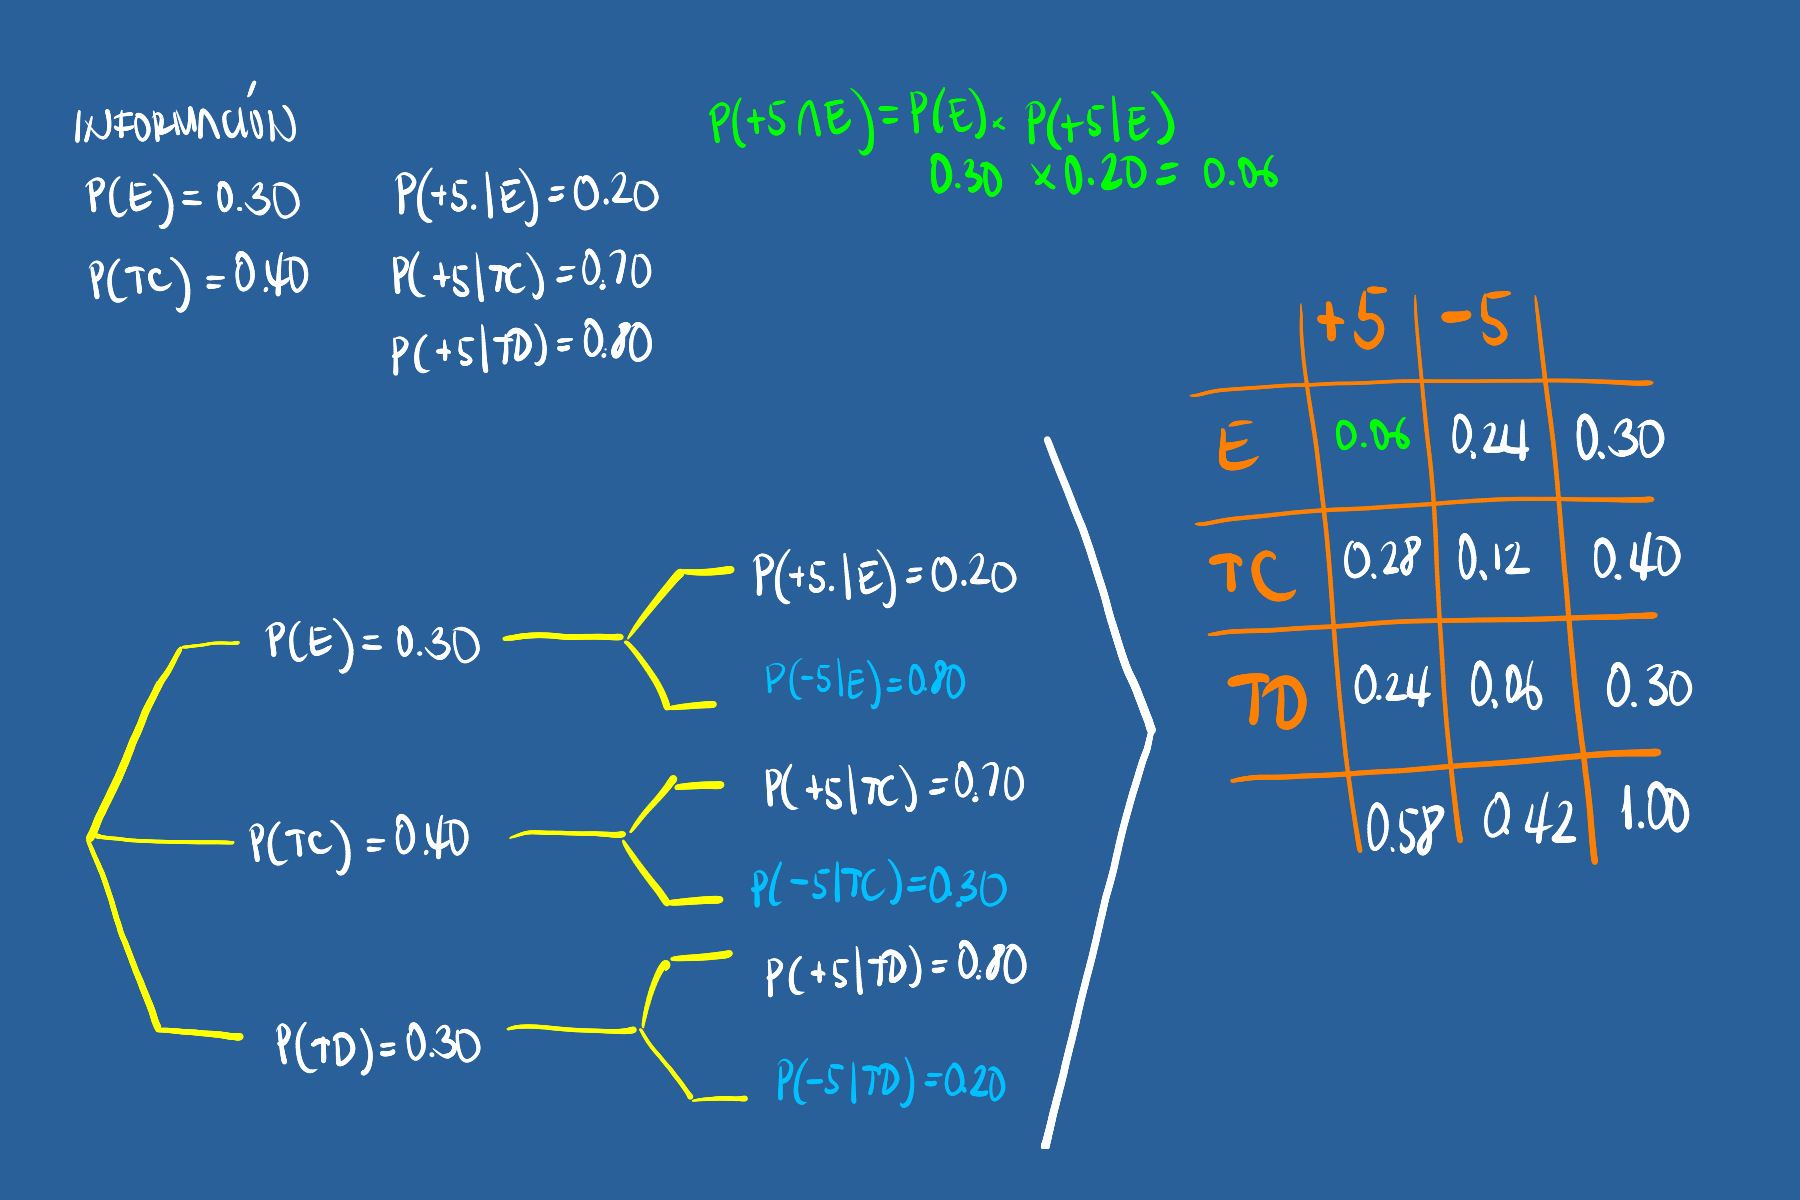 INFORMACIÓN
P(E) = 0.30
P(TC) = 0.40
P(+5.|E) = 0.20
P(+5|TC) = 0.70
P(+5|TD) = 0.80
P(+5∩E) = P(E) x P(+5|E)
0.30 x 0.20 = 0.06
P(E) = 0.30
P(+5.|E) = 0.20
P(-5|E) = 0.80
P(TC) = 0.40
P(+5|TC) = 0.70
P(-5|TC) = 0.30
P(TD) = 0.30
P(+5|TD) = 0.80
P(-5|TD) = 0.20
+5 -5
E 0.06 0.24 0.30
TC 0.28 0.12 0.40
TD 0.24 0.06 0.30
0.58 0.42 1.00